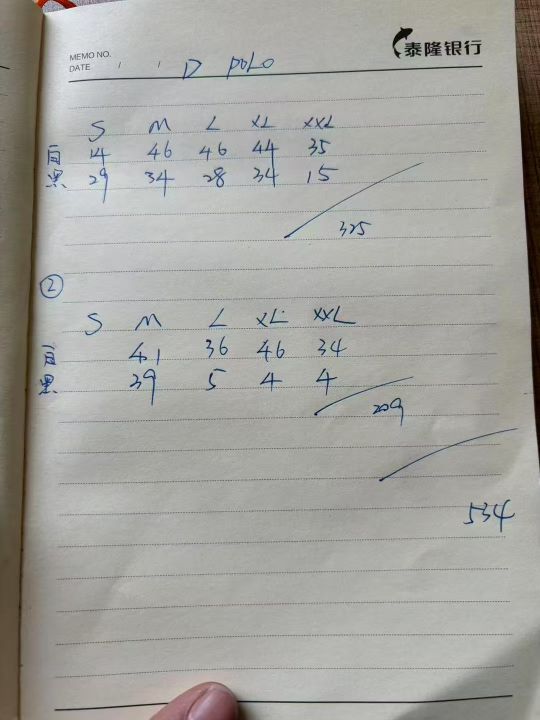 MEMO NO.
DATE / /
泰隆银行
D POLO
S M L XL XXL
白 14 46 46 44 35
黑 29 34 28 34 15
325
②
S M L XL XXL
白 41 36 46 34
黑 39 5 4 4
209
534